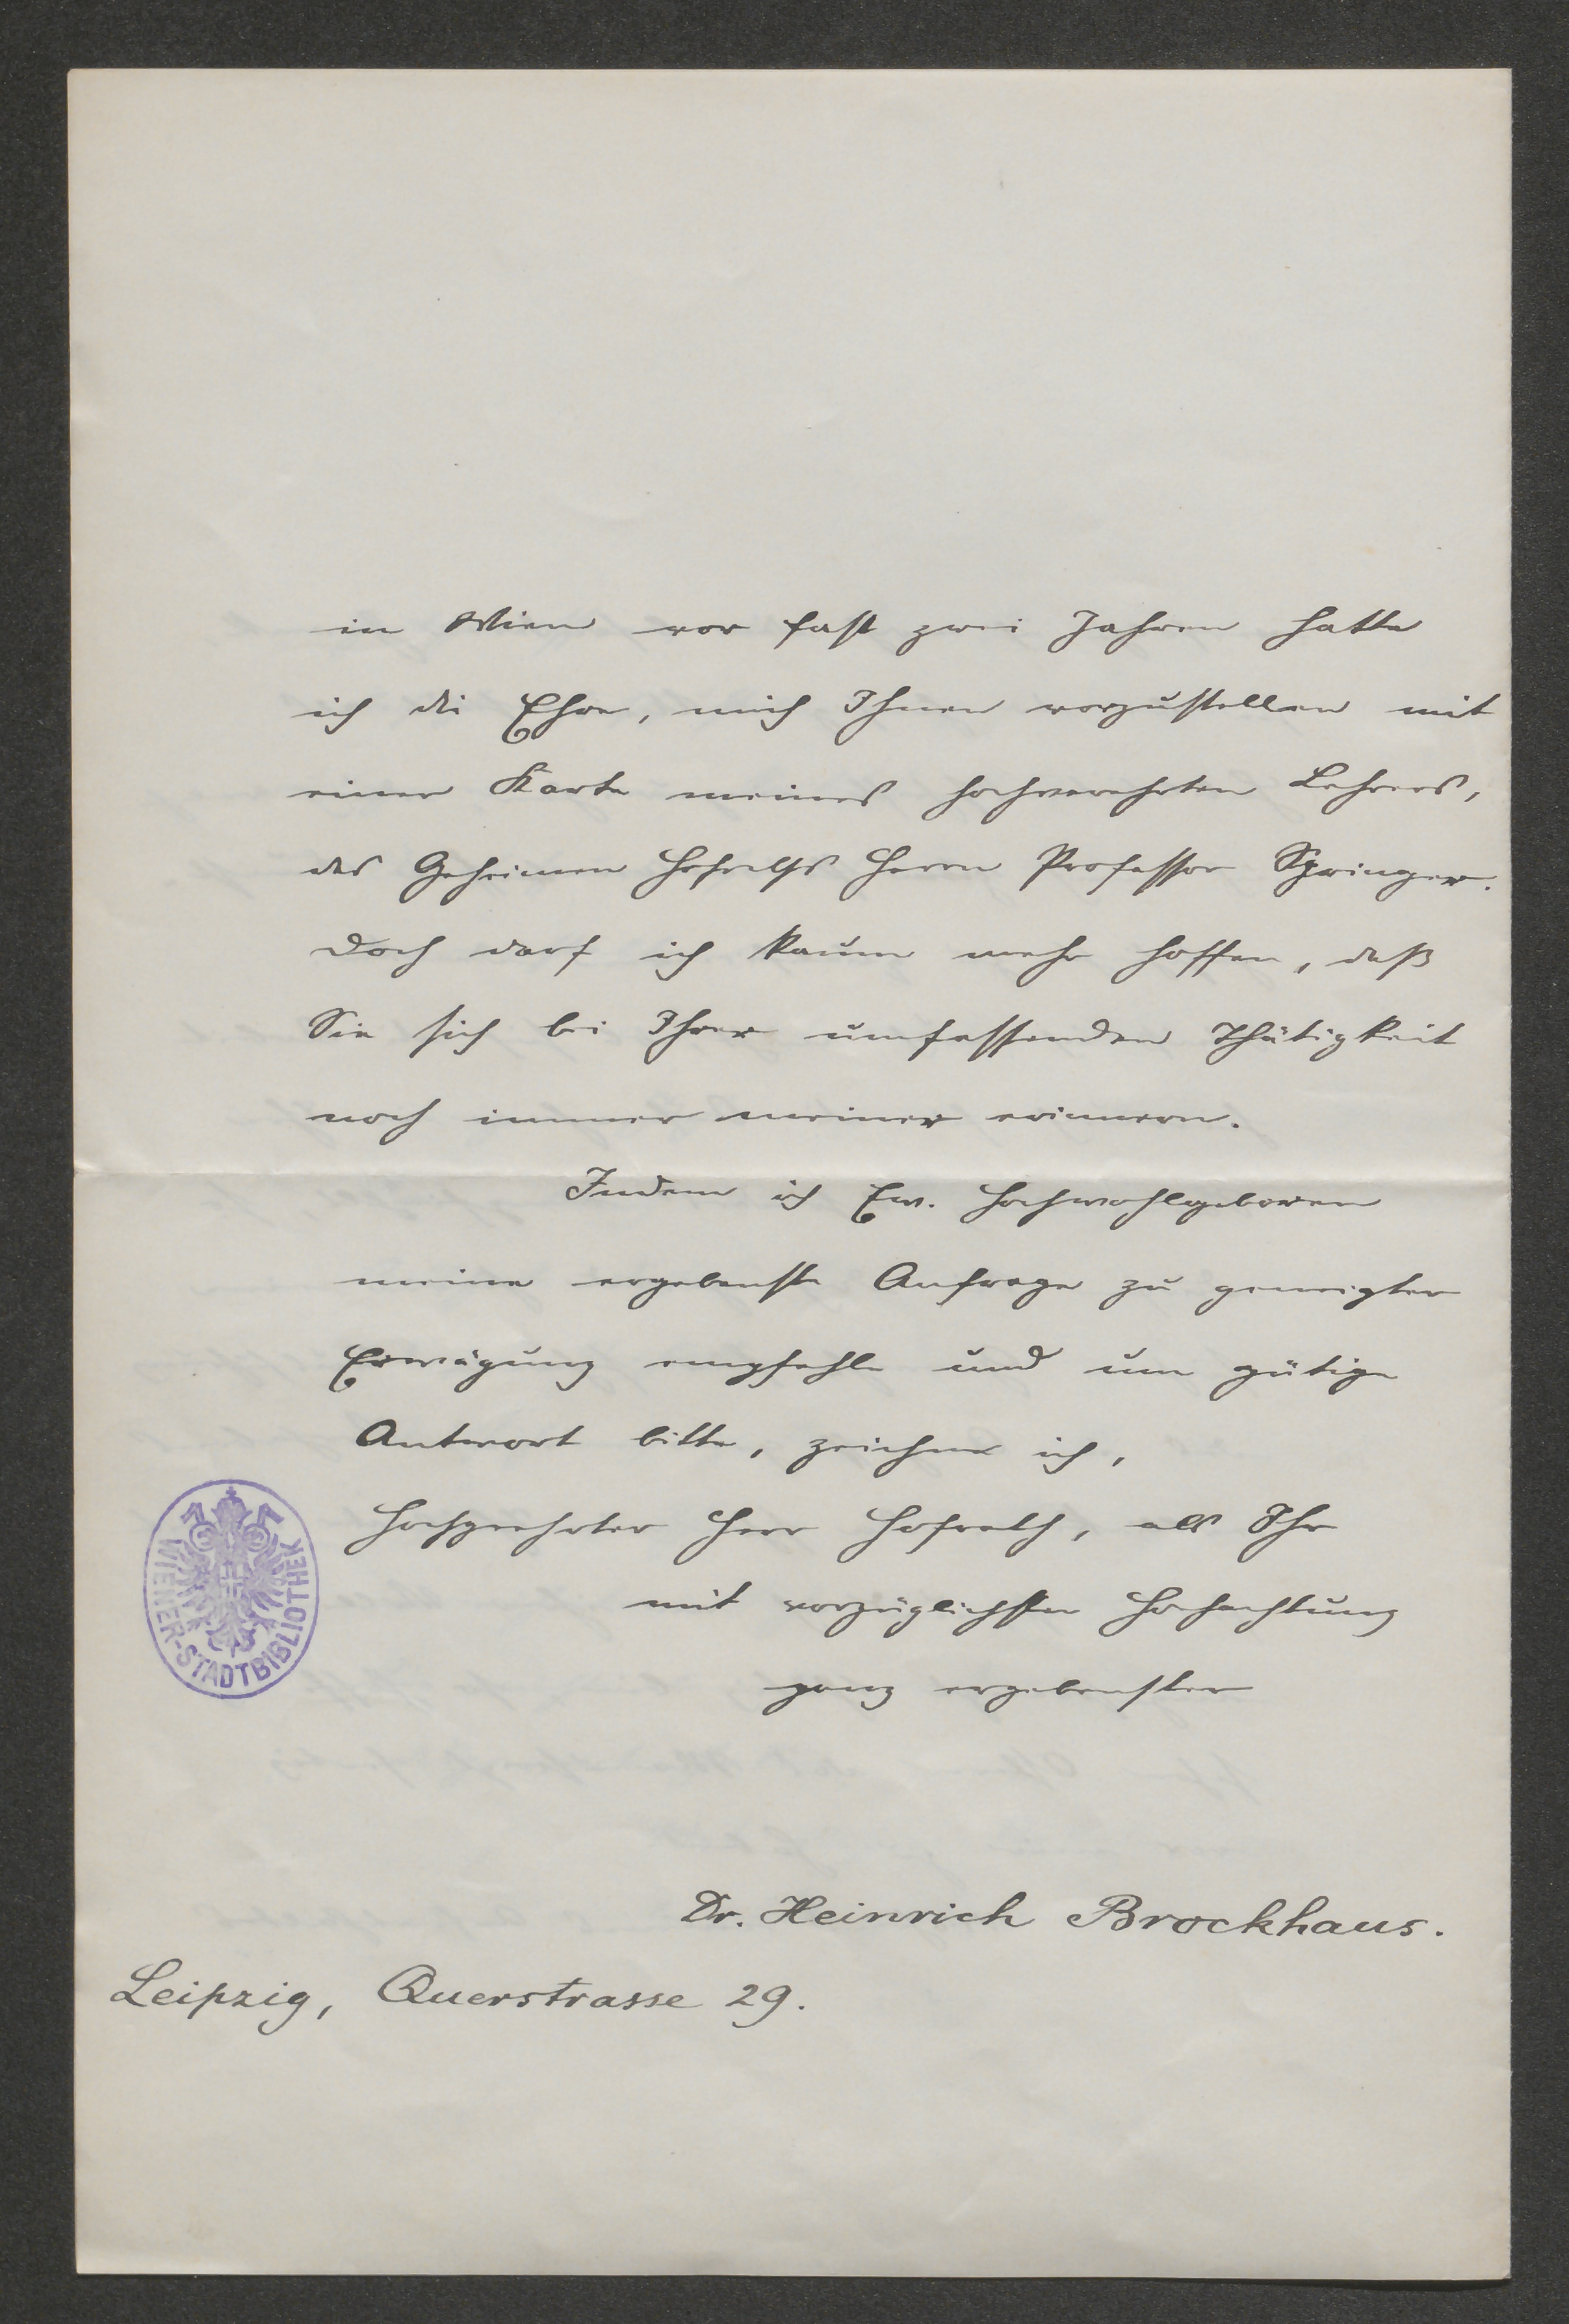 in Wien vor fast zwei Jahren hatte
ich die Ehre, mich Ihnen vorzustellen mit
einer Karte meines hochverehrten Lehrers,
des Geheimen Hofraths Herrn Professor Springer.
Doch darf ich kaum mehr hoffen, daß
Sie sich bei Ihrer umfassenden Thätigkeit
noch immer meiner erinnern.
Indem ich Ew. Hochwohlgeboren
meine ergebenste Anfrage zu geneigter
Erwägung empfehle und um gütige
Antwort bitte, zeichne ich,
hochgeehrter Herr Hofrath, als Ihr
mit vorzüglichster Hochachtung
ganz ergebenster
WIENER-STADTBIBLIOTHEK
Dr. Heinrich Brockhaus.
Leipzig, Querstrasse 29.